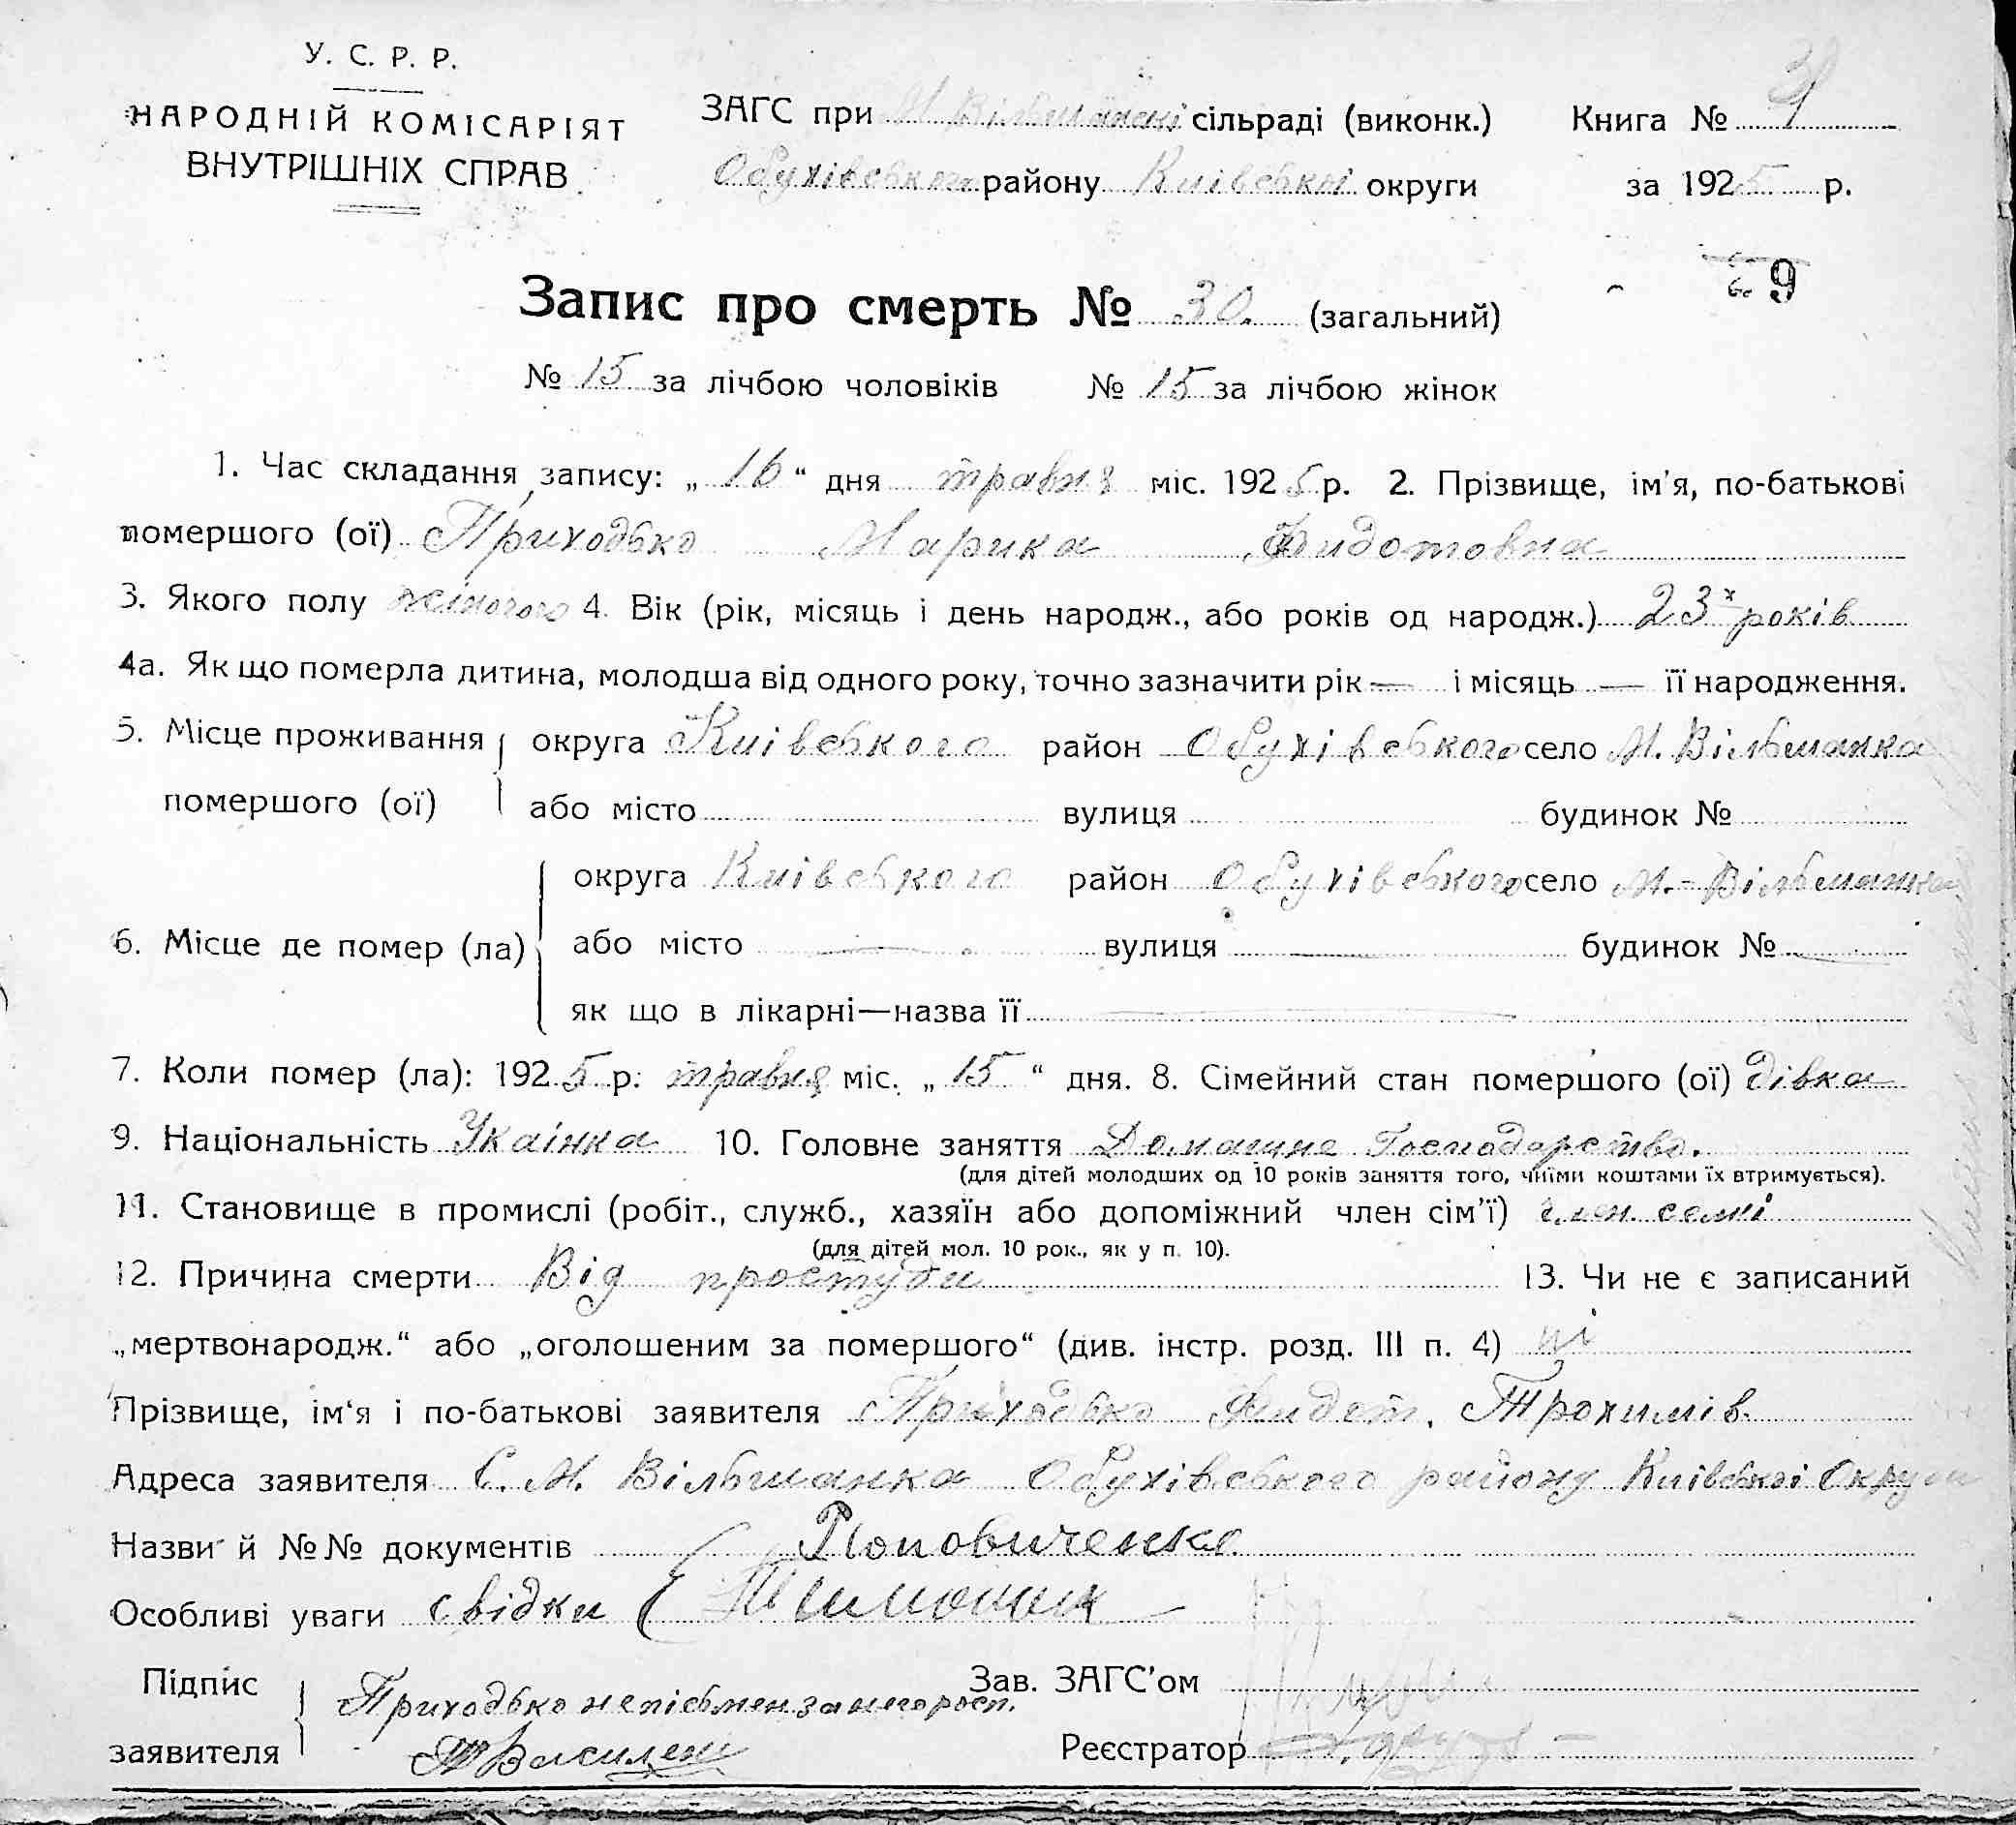 У. С. Р. Р.
НАРОДНІЙ КОМІСАРІЯТ
ВНУТРІШНІХ СПРАВ
ЗАГС при М Вільшанскі сільраді (виконк.)
Обухівського району Київської округи
Книга №
за 1925 р.
9
Запис про смерть № 30. (загальний)
№ 15 за лічбою чоловіків № 15 за лічбою жінок
1. Час складання запису: „ 16 “ дня травня міс. 1925 р. 2. Прізвище, ім'я, по-батькові
помершого (ої) Приходько Марика Фидотовна
3. Якого полу жіночого 4. Вік (рік, місяць і день народж., або років од народж.) 23х років
4а. Як що померла дитина, молодша від одного року, точно зазначити рік — і місяць — її народження.
5. Місце проживання помершого (ої) округа Киівського район Обухівського село М. Вільшанка
або місто вулиця будинок №
6. Місце де помер (ла) округа Киівського район Обухівського село М.-Вільшанка
або місто — вулиця — будинок № —
як що в лікарні—назва її —
7. Коли помер (ла): 1925 р. травня міс. „ 15 “ дня. 8. Сімейний стан помершого (ої) дівка
9. Національність Укаінка 10. Головне заняття Домашне Господарство.
(для дітей молодших од 10 років заняття того, чиїми коштами їх втримується).
11. Становище в промислі (робіт., служб., хазяїн або допоміжний член сім'ї) член семі
(для дітей мол. 10 рок., як у п. 10).
12. Причина смерти Від простуди 13. Чи не є записаний
„мертвонародж.“ або „оголошеним за помершого“ (див. інстр. розд. III п. 4) ні
Прізвище, ім'я і по-батькові заявителя Приходько Фидот. Трохимів.
Адреса заявителя С. М. Вільшанка Обухівського району Киівскоі Округи
Назви й №№ документів Поповиченко
Особливі уваги свідки ( Тимошик
Підпис заявителя Приходько непісьмен за него росп.
Василец
Зав. ЗАГС'ом
Реєстратор